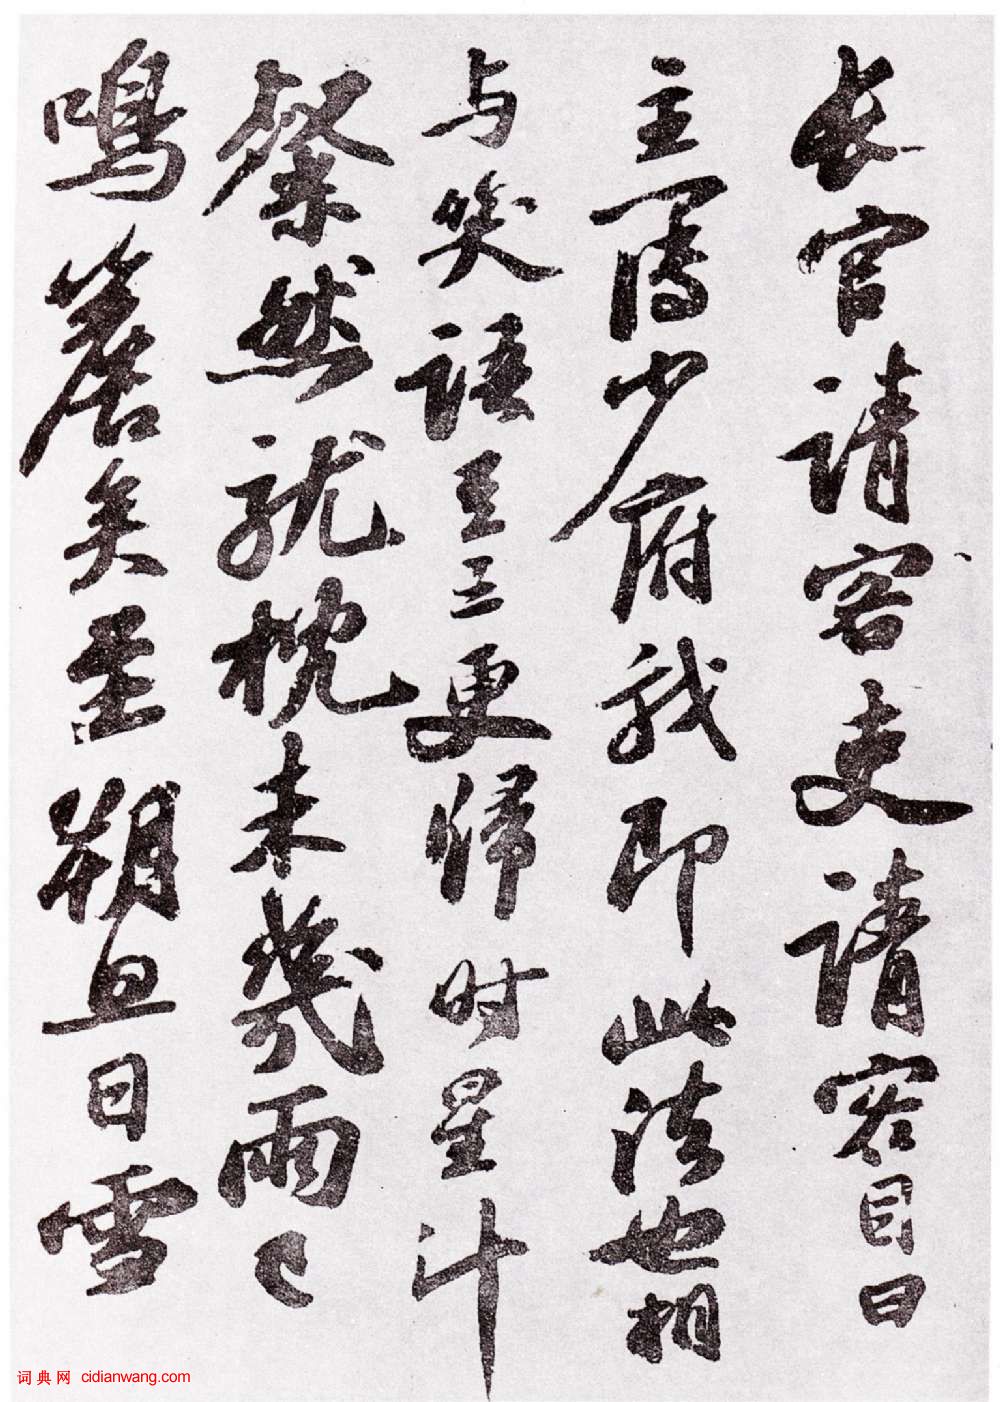 长官请客吏请客目曰
主簿少府我即此法也相
与笑语至三更归时星斗
粲然就枕未几雨已
鸣檐矣至朔旦日雪
词典网 cidianwang.com